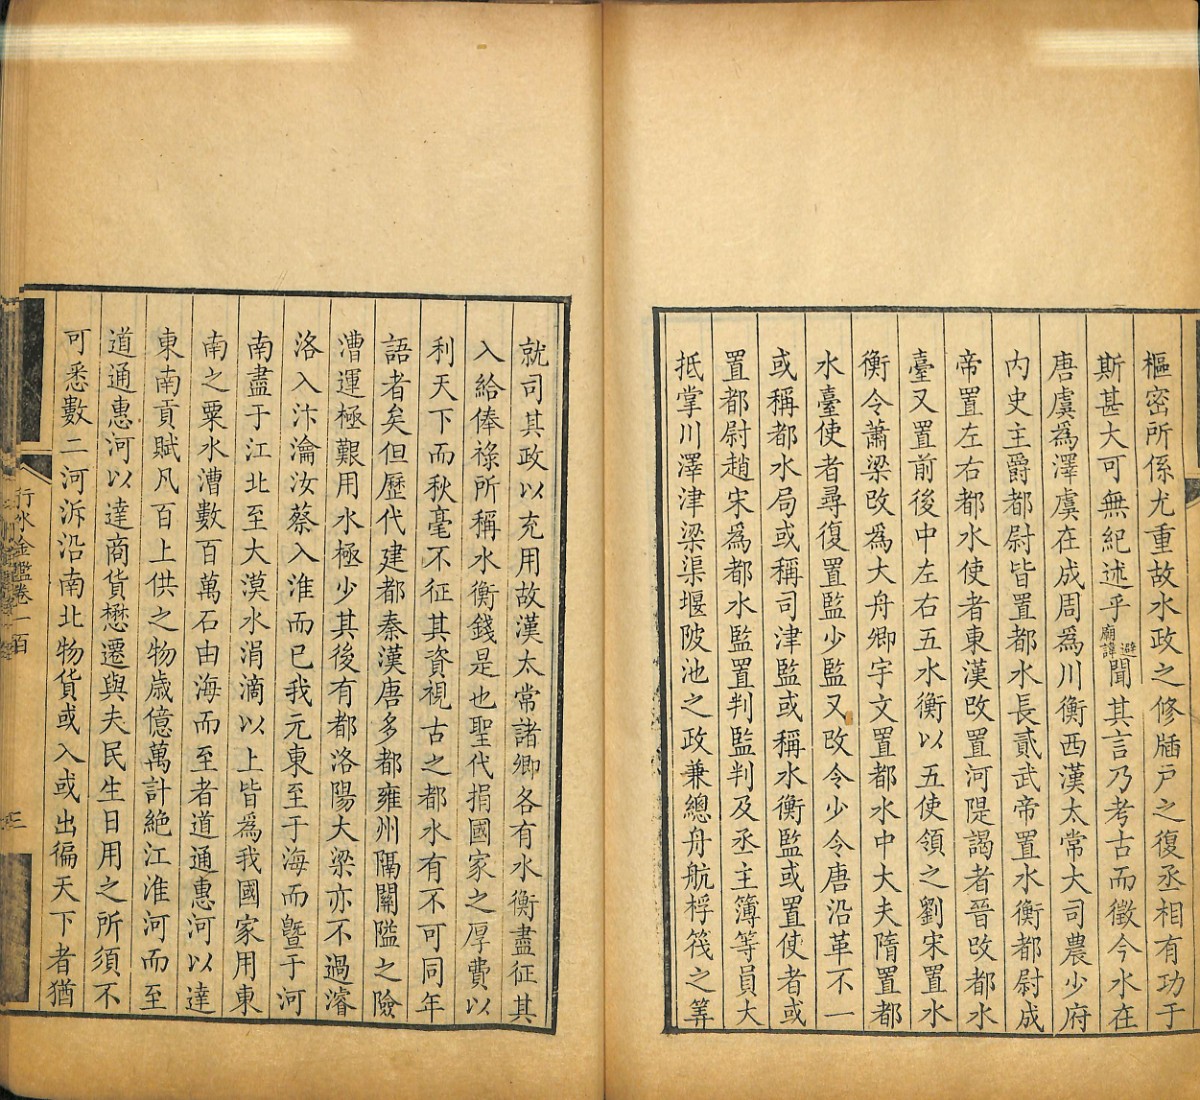 樞密所係尤重故水政之修牐戶之復丞相有功于
斯甚大可無紀述乎避廟諱聞其言乃考古而徵今水在
唐虞為澤虞在成周為川衡西漢太常大司農少府
內史主爵都尉皆置都水長貳武帝置水衡都尉成
帝置左右都水使者東漢改置河隄謁者晉改都水
臺又置前後中左右五水衡以五使領之劉宋置水
衡令蕭梁改為大舟卿宇文置都水中大夫隋置都
水臺使者尋復置監少監又改令少令唐沿革不一
或稱都水局或稱司津監或稱水衡監或置使者或
置都尉趙宋為都水監置判監判及丞主簿等員大
抵掌川澤津梁渠堰陂池之政兼總舟航桴筏之筭
就司其政以充用故漢太常諸卿各有水衡盡征其
入給俸祿所稱水衡錢是也聖代捐國家之厚費以
利天下而秋毫不征其資視古之都水有不可同年
語者矣但歷代建都秦漢唐多都雍州隔關隘之險
漕運極艱用水極少其後有都洛陽大梁亦不過濬
洛入汴瀹汝蔡入淮而已我元東至于海而暨于河
南盡于江北至大漠水涓滴以上皆為我國家用東
南之粟水漕數百萬石由海而至者道通惠河以達
東南貢賦凡百上供之物歲億萬計絶江淮河而至
道通惠河以達商貨懋遷與夫民生日用之所須不
可悉數二河泝沿南北物貨或入或出徧天下者猶
行水金鑑卷一百
三